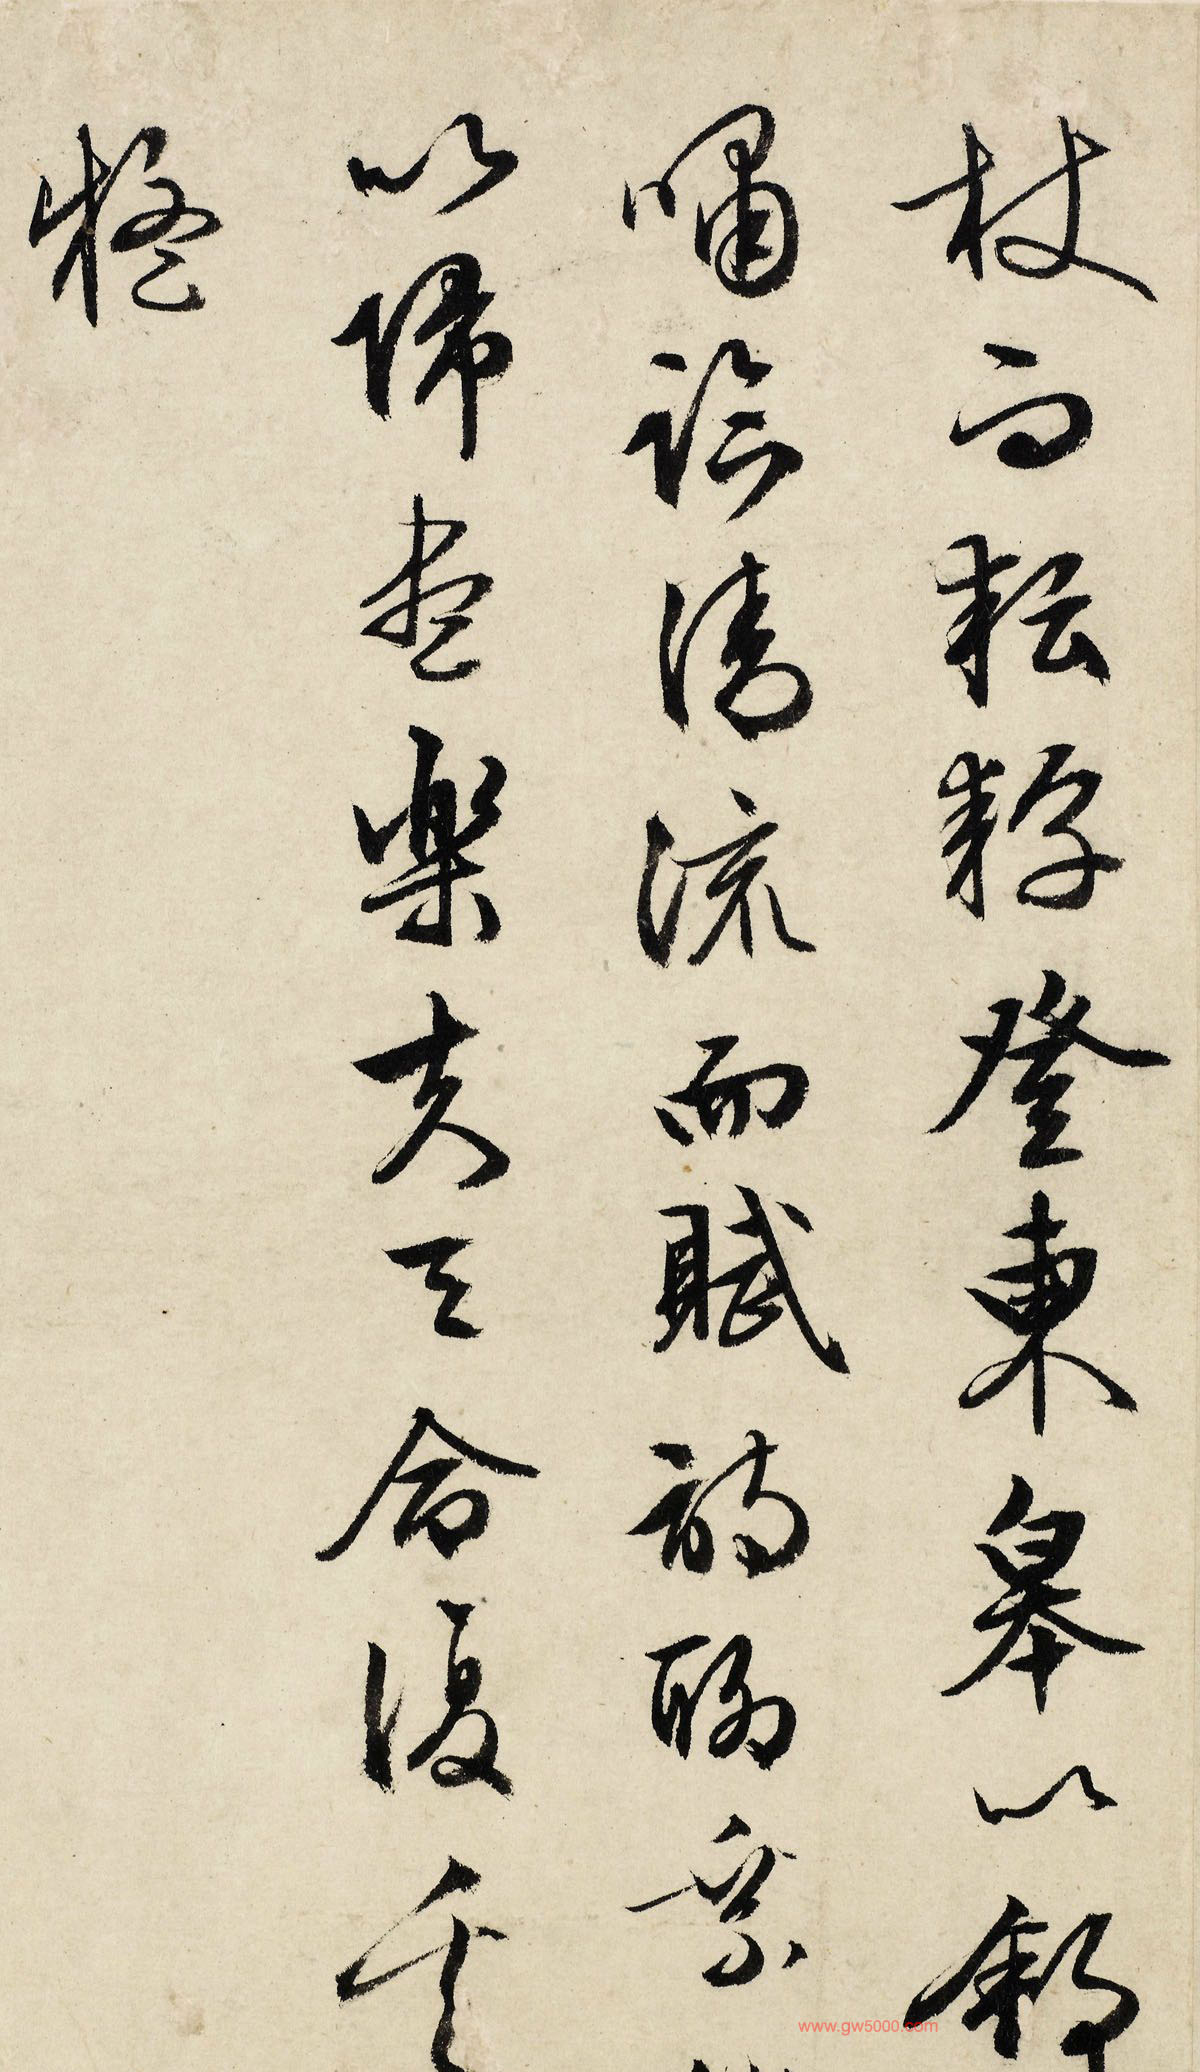 杖而耘耔登東皋以舒
嘯臨清流而賦詩聊乘
以歸盡樂夫天命復奚
疑
www.gw5000.com